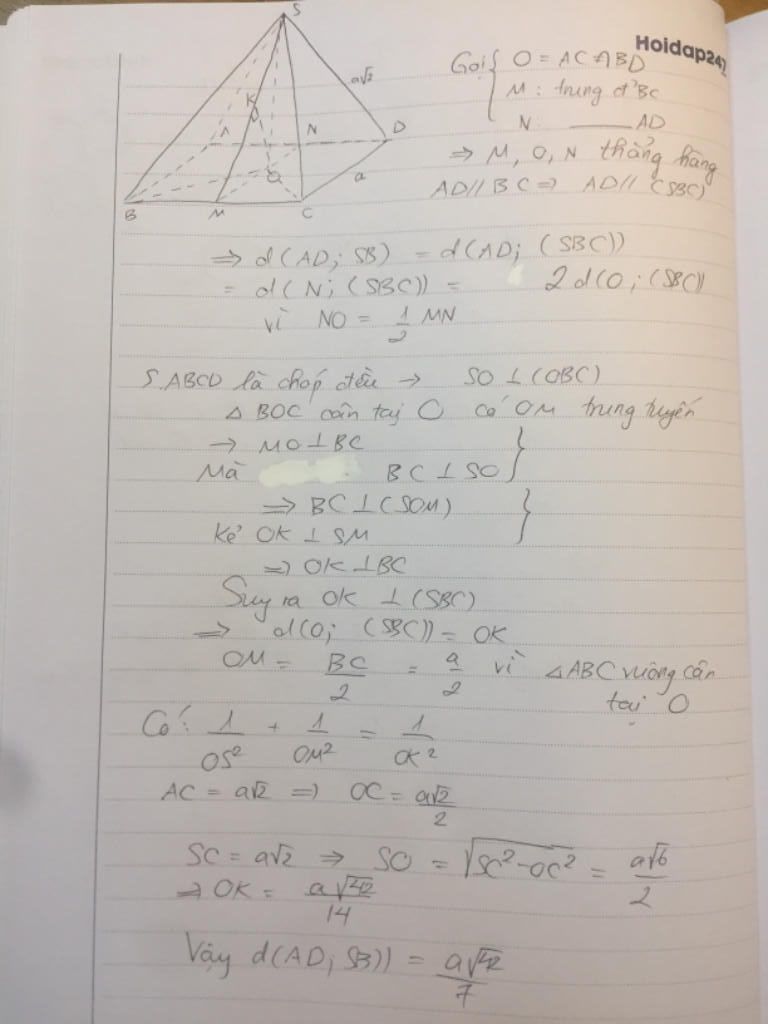 Hoidap247
S
a√2
K
A
N
D
O
a
B
M
C
Gọi { O = AC ∩ BD
M : trung đ' BC
N : ——— AD
⇒ M, O, N thẳng hàng
AD // BC ⇒ AD // (SBC)
⇒ d(AD; SB) = d(AD; (SBC))
= d(N; (SBC)) = 2d(O; (SBC)
vì NO = 1/2 MN
S.ABCD là chóp đều → SO ⊥ (OBC)
△ BOC cân tại O có OM trung tuyến
→ MO ⊥ BC
Mà BC ⊥ SO }
⇒ BC ⊥ (SOM)
Kẻ OK ⊥ SM }
⇒ OK ⊥ BC
Suy ra OK ⊥ (SBC)
⇒ d(O; (SBC)) = OK
OM = BC/2 = a/2 vì △ABC vuông cân
tại O
Có: 1/OS² + 1/OM² = 1/OK²
AC = a√2 ⇒ OC = a√2/2
SC = a√2 ⇒ SO = √(SC² - OC²) = a√6/2
⇒ OK = a√42/14
Vậy d(AD; SB)) = a√42/7